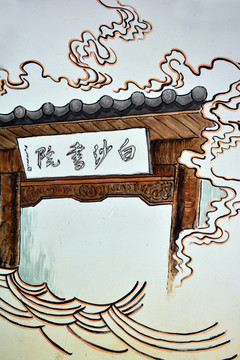 白沙書院